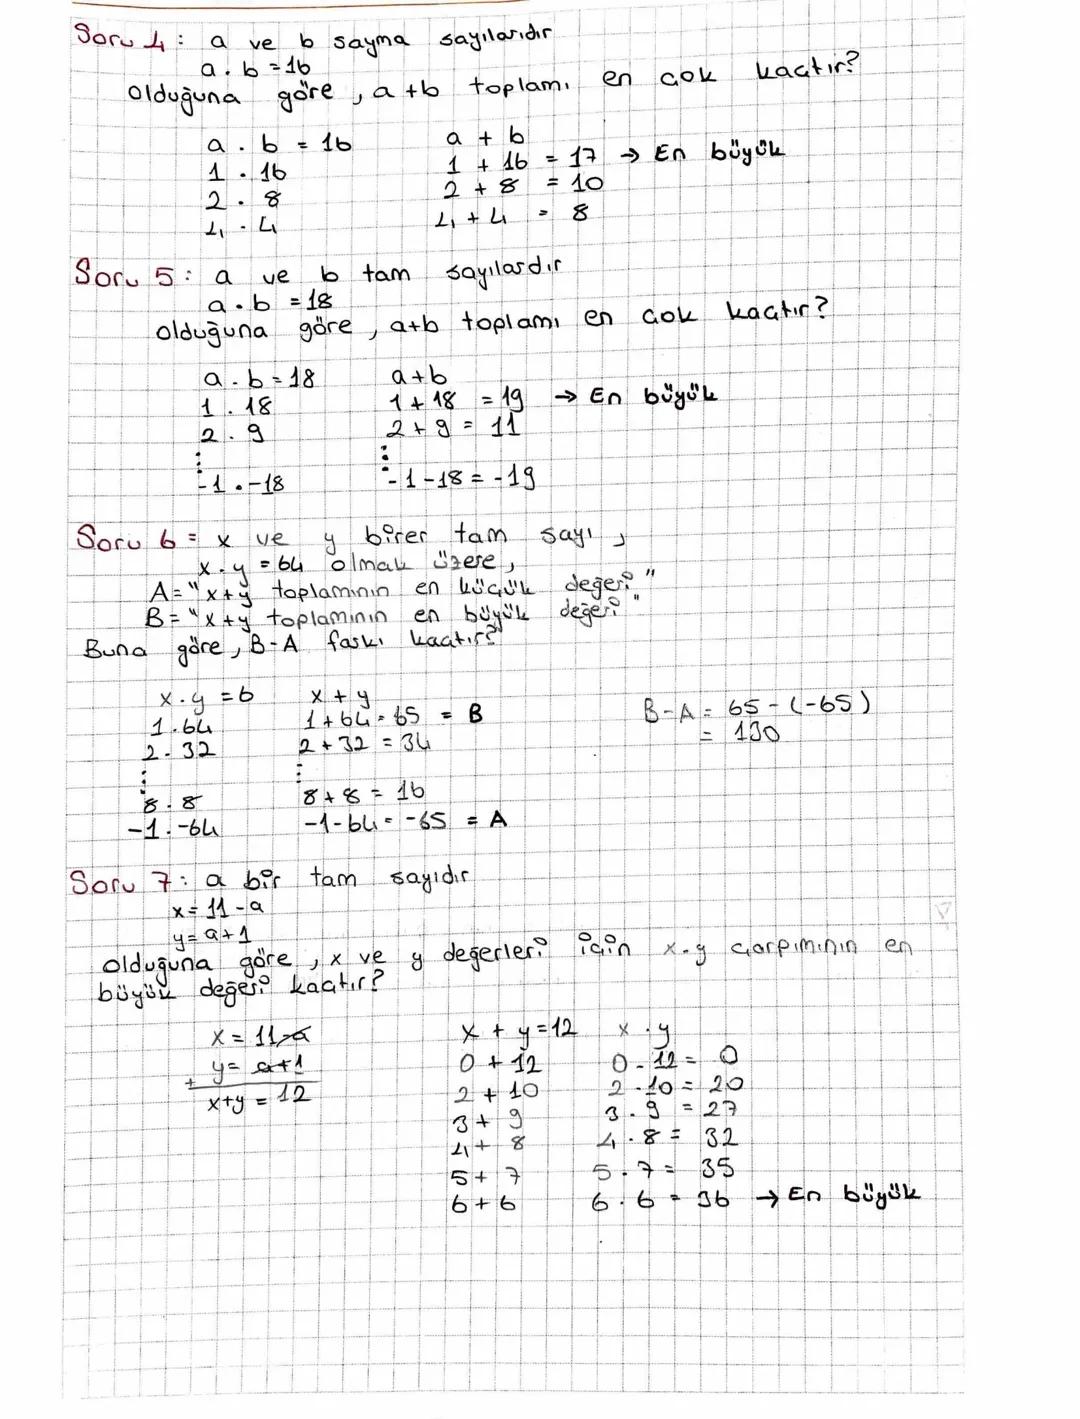 Soru 4: a ve b sayma sayılarıdır
a . b = 16
Olduğuna göre, a+b toplamı en çok kaçtır?
a . b = 16 a + b
1 . 16 1 + 16 = 17 → En büyük
2 . 8 2 + 8 = 10
4 . 4 4 + 4 = 8
Soru 5: a ve b tam sayılardır
a . b = 18
olduğuna göre, a+b toplamı en çok kaçtır?
a . b = 18 a+b
1 . 18 1 + 18 = 19 → En büyük
2 . 9 2 + 9 = 11
⋮ ⋮
-1 . -18 -1 -18 = -19
Soru 6 = x ve y birer tam sayı,
x . y = 64 olmak üzere,
A= "x+y toplamının en küçük değeri"
B= "x+y toplamının en büyük değeri"
Buna göre, B-A farkı kaçtır?
x . y = 6 x + y
1 . 64 1 + 64 = 65 = B B-A = 65 - (-65)
2 . 32 2 + 32 = 34 = 130
⋮ ⋮
8 . 8 8 + 8 = 16
-1 . -64 -1 - 64 = -65 = A
Soru 7: a bir tam sayıdır
x = 11 - a
y = a + 1
olduğuna göre, x ve y değerleri için x.y çarpımının en
büyük değeri kaçtır?
x = 11 - a x + y = 12 x . y
y = a + 1 0 + 12 0 . 12 = 0
+ x+y = 12 2 + 10 2 . 10 = 20
3 + 9 3 . 9 = 27
4 + 8 4 . 8 = 32
5 + 7 5 . 7 = 35
6 + 6 6 . 6 = 36 → En büyük